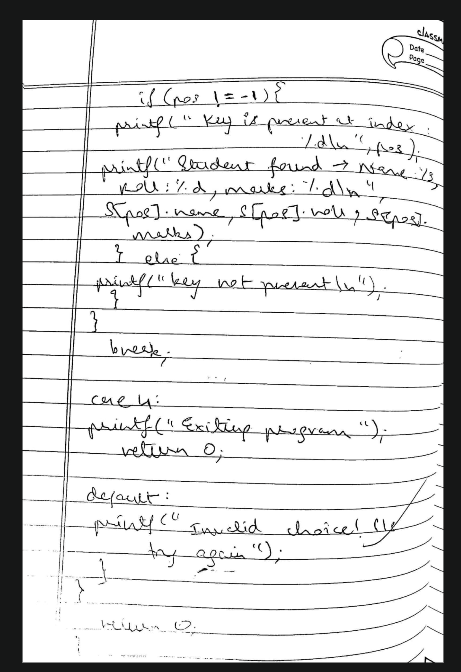 classm
Date
Page
if (pos != -1) {
printf(" Key is present at index :
%d\n", pos);
printf(" Student found → Name: %s,
Roll: %d, marks: %d\n",
S[pos].name, S[pos].roll, S[pos].
marks);
} else {
printf("key not present \n");
}
}
break;
case 4:
printf(" Exiting program ");
return 0;
default:
printf(" Invalid choice!
try again");
}
}
return 0;
}